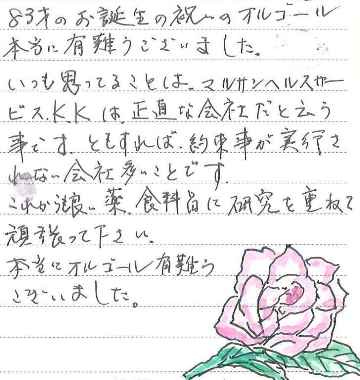 83才のお誕生の祝いのオルゴール
本当に有難うございました。
いつも思ってることは、マルサンヘルスサー
ビス.K.K は、正直な会社だと云う
事です。ともすれば、約束事が実行さ
れない会社多いことです。
これから良い薬、食料品に研究を重ねて
頑張って下さい。
本当にオルゴール有難う
ございました。